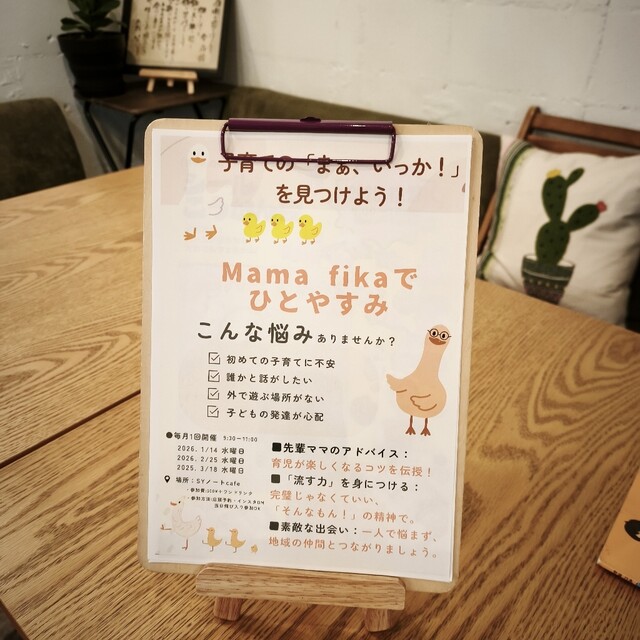 子育ての「まぁ、いっか！」
を見つけよう！
Mama fikaで
ひとやすみ
こんな悩みありませんか？
初めての子育てに不安
誰かと話がしたい
外で遊ぶ場所がない
子どもの発達が心配
●毎月1回開催 9:30〜11:00
2026. 1/14 水曜日
2026. 2/25 水曜日
2025. 3/18 水曜日
場所：SYノートcafé
■先輩ママのアドバイス：
育児が楽しくなるコツを伝授！
■「流す力」を身につける：
完璧じゃなくていい、
「そんなもん！」の精神で。
■素敵な出会い：一人で悩まず、
地域の仲間とつながりましょう。